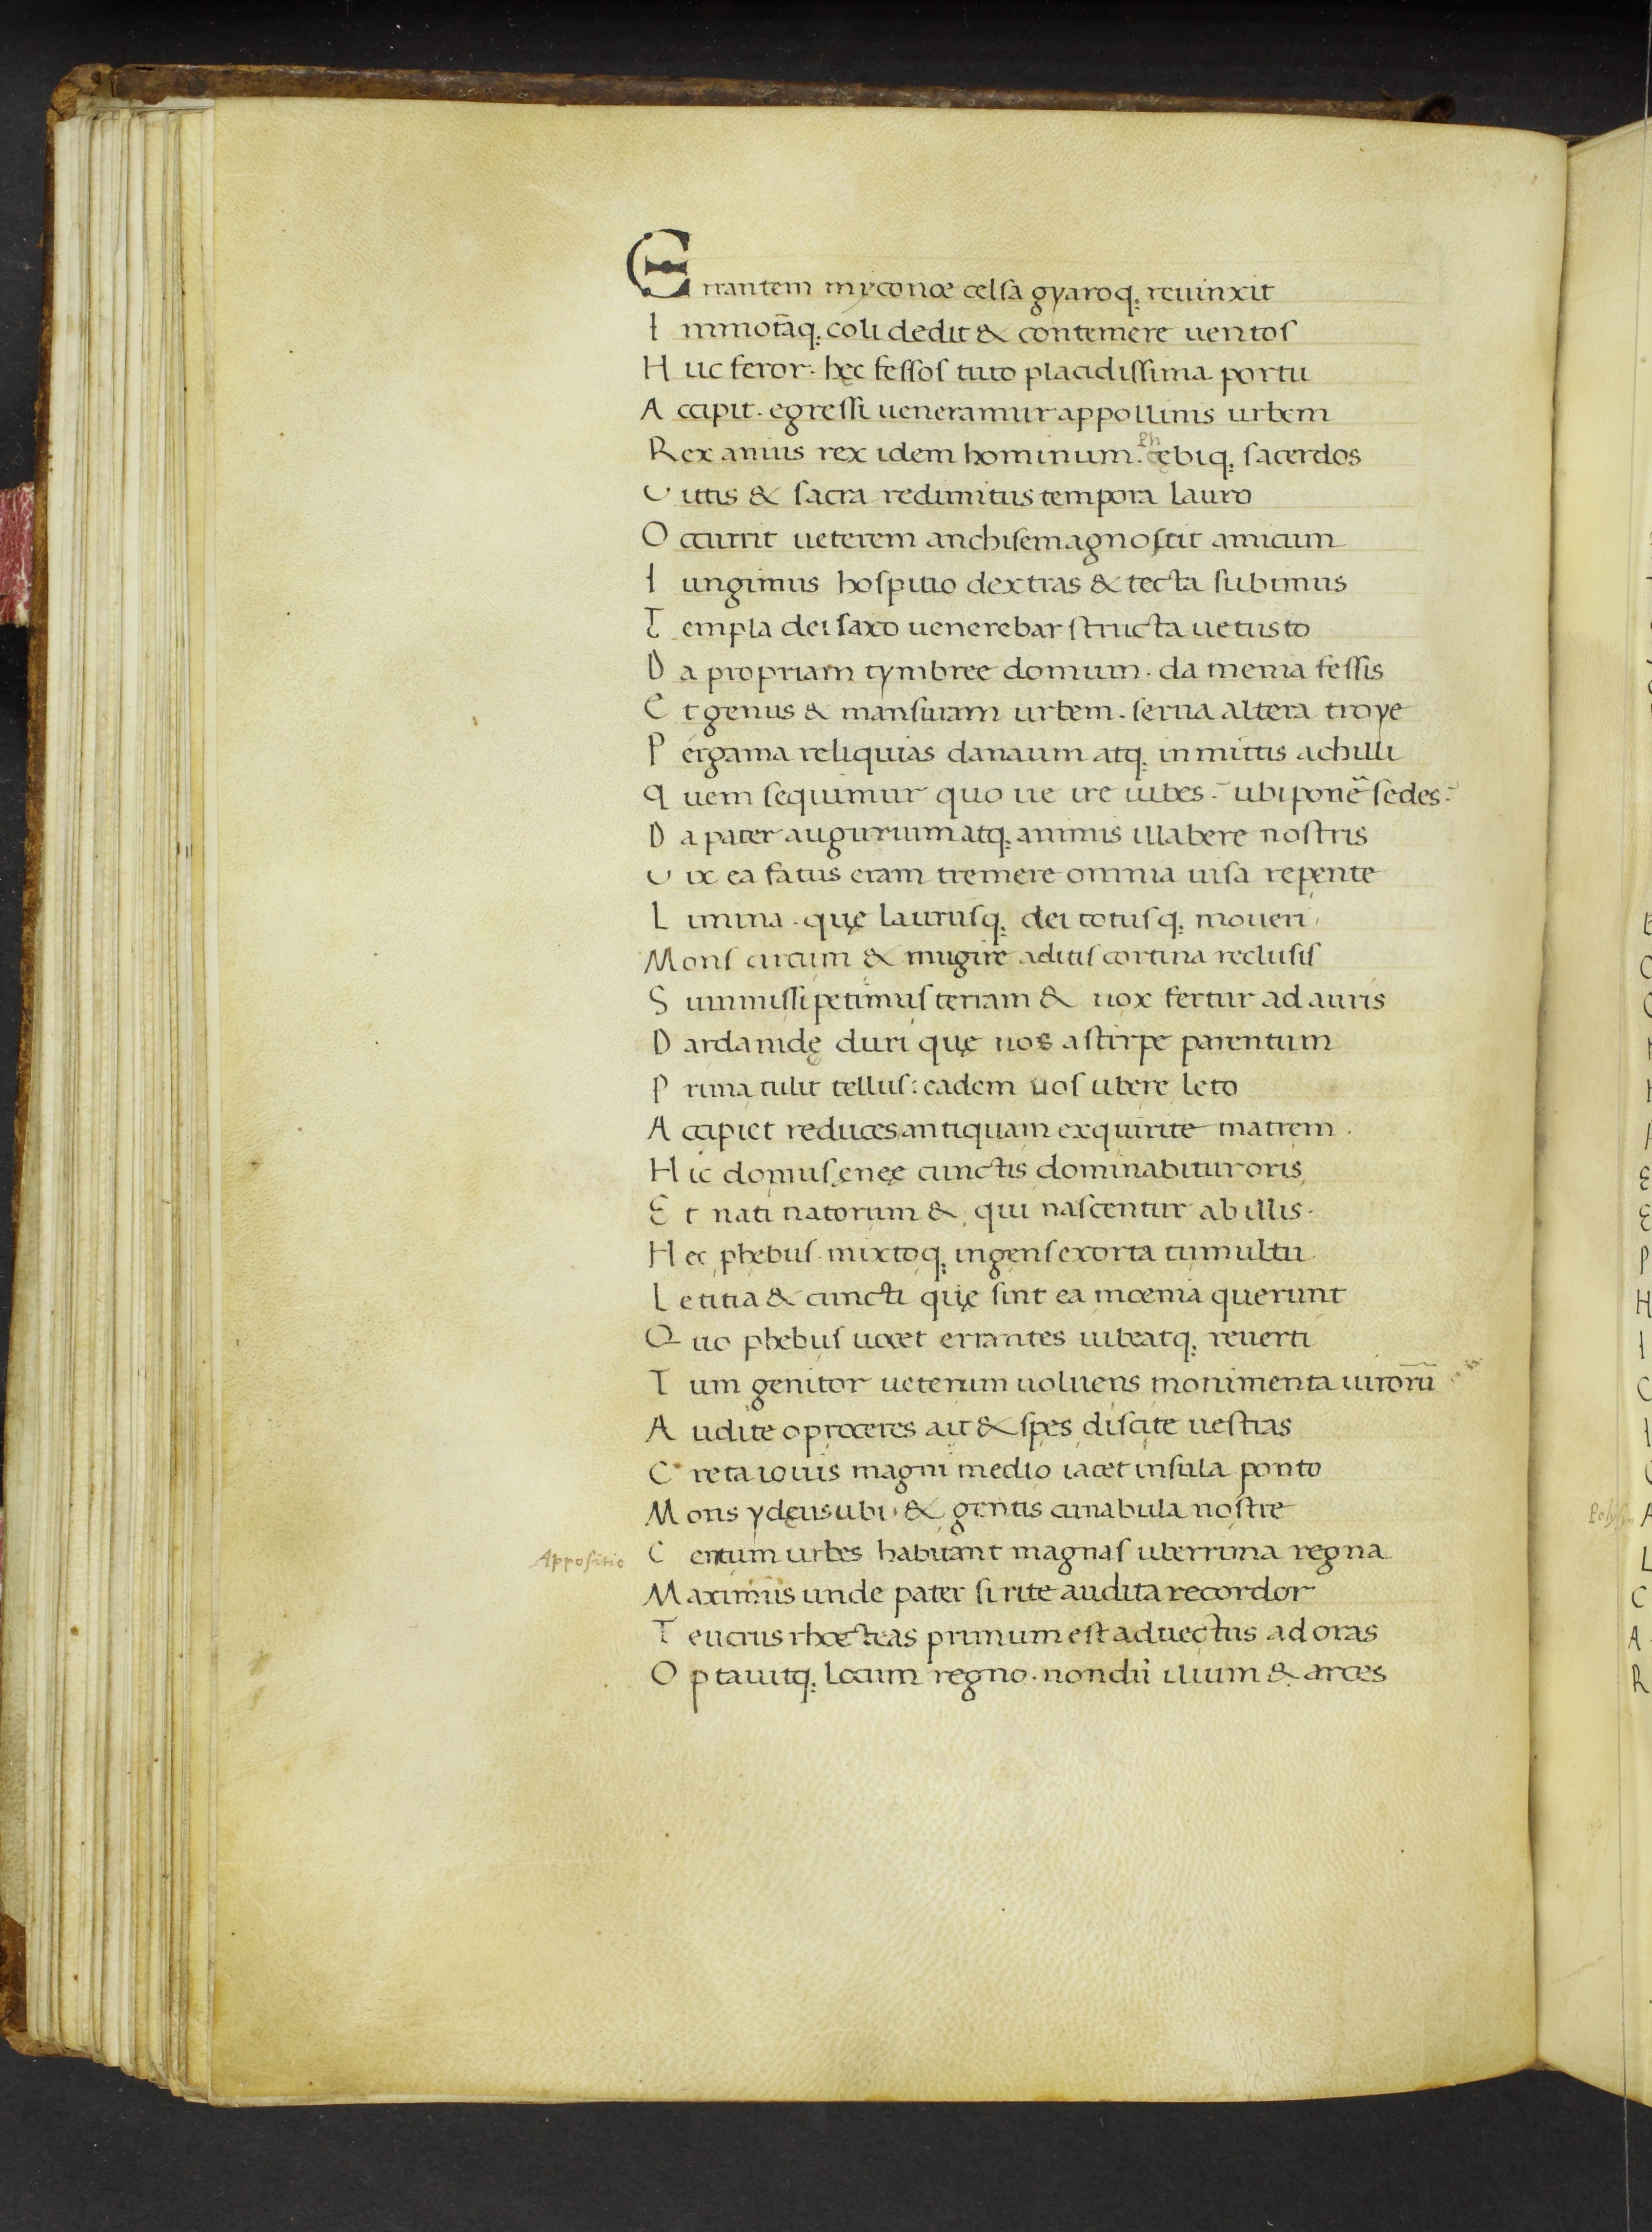 Errantem myconæ celsa gyaroq; reuinxit
Immotāq; coli dedit & contemere uentos
Huc feror. hęc fessos tuto placidissima portu
Accipit. egressi ueneramur appollinis urbem
Rex anius rex idem hominum. Phębiq; sacerdos
Uittis & sacra redimitus tempora lauro
Occurrit ueterem anchisem agnoscit amicum
Iungimus hospitio dextras & tecta subimus
Templa dei saxo uenerebar structa uetusto
Da propriam tymbree domum. da menia fessis
Et genus & mansuram urbem. serua altera troye
Pergama reliquias danaum atq; inmittis achilli
Quem sequimur quo ue ire iubes. ubi ponē sedes.
Da pater augurium atq; animis illabere nostris
Uix ea fatus eram tremere omnia uisa repente
Limina. quę laurusq; dei totusq; moueri
Mons circum & mugire aditis cortina reclusis
Summissi petimus terram & uox fertur ad auris
Dardanidę duri quę uos a stirpe parentum
Prima tulit tellus: eadem uos ubere leto
Accipiet reduces antiquam exquirite matrem.
Hic domus ęnęę cunctis dominabitur oris
Et nati natorum & qui nascentur ab illis.
Hec phebus mixtoq; ingens exorta tumultu
Letitia & cuncti quę sint ea mœnia querunt
Quo phebus uocet errantes iubeatq; reuerti
Tum genitor ueterum uoluens monimenta uirorū
Audite o proceres ait & spes discite uestras
Creta iouis magni medio iacet insula ponto
Mons ydęus ubi & gentis cunabula nostre
Appositio
Centum urbes habitant magnas uberrima regna
Maximus unde pater si rite audita recordor
Teucrus rhœteas primum est aduectus ad oras
Optauitq; locum regno. nondū ilium & arces